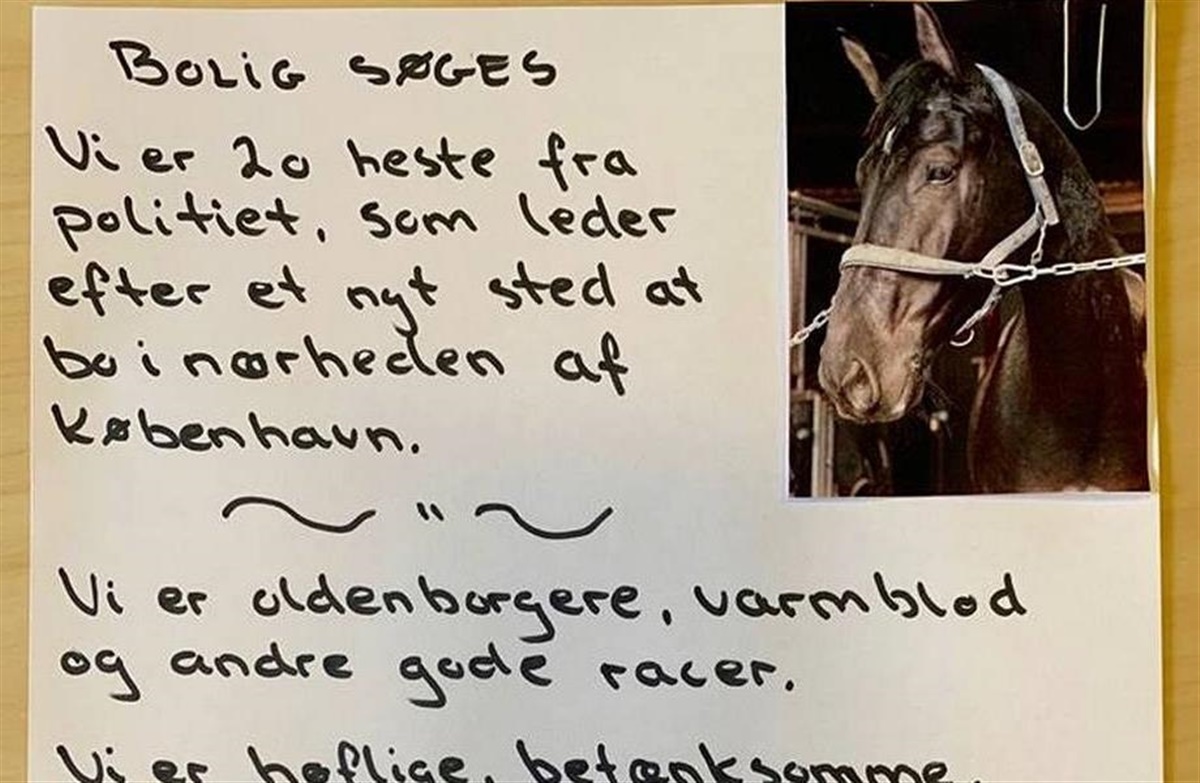 BOLIG SØGES
Vi er 20 heste fra
politiet, som leder
efter et nyt sted at
bo i nærheden af
København.
~ " ~
Vi er oldenborgere, varmblod
og andre gode racer.
Vi er høflige, betænksomme,